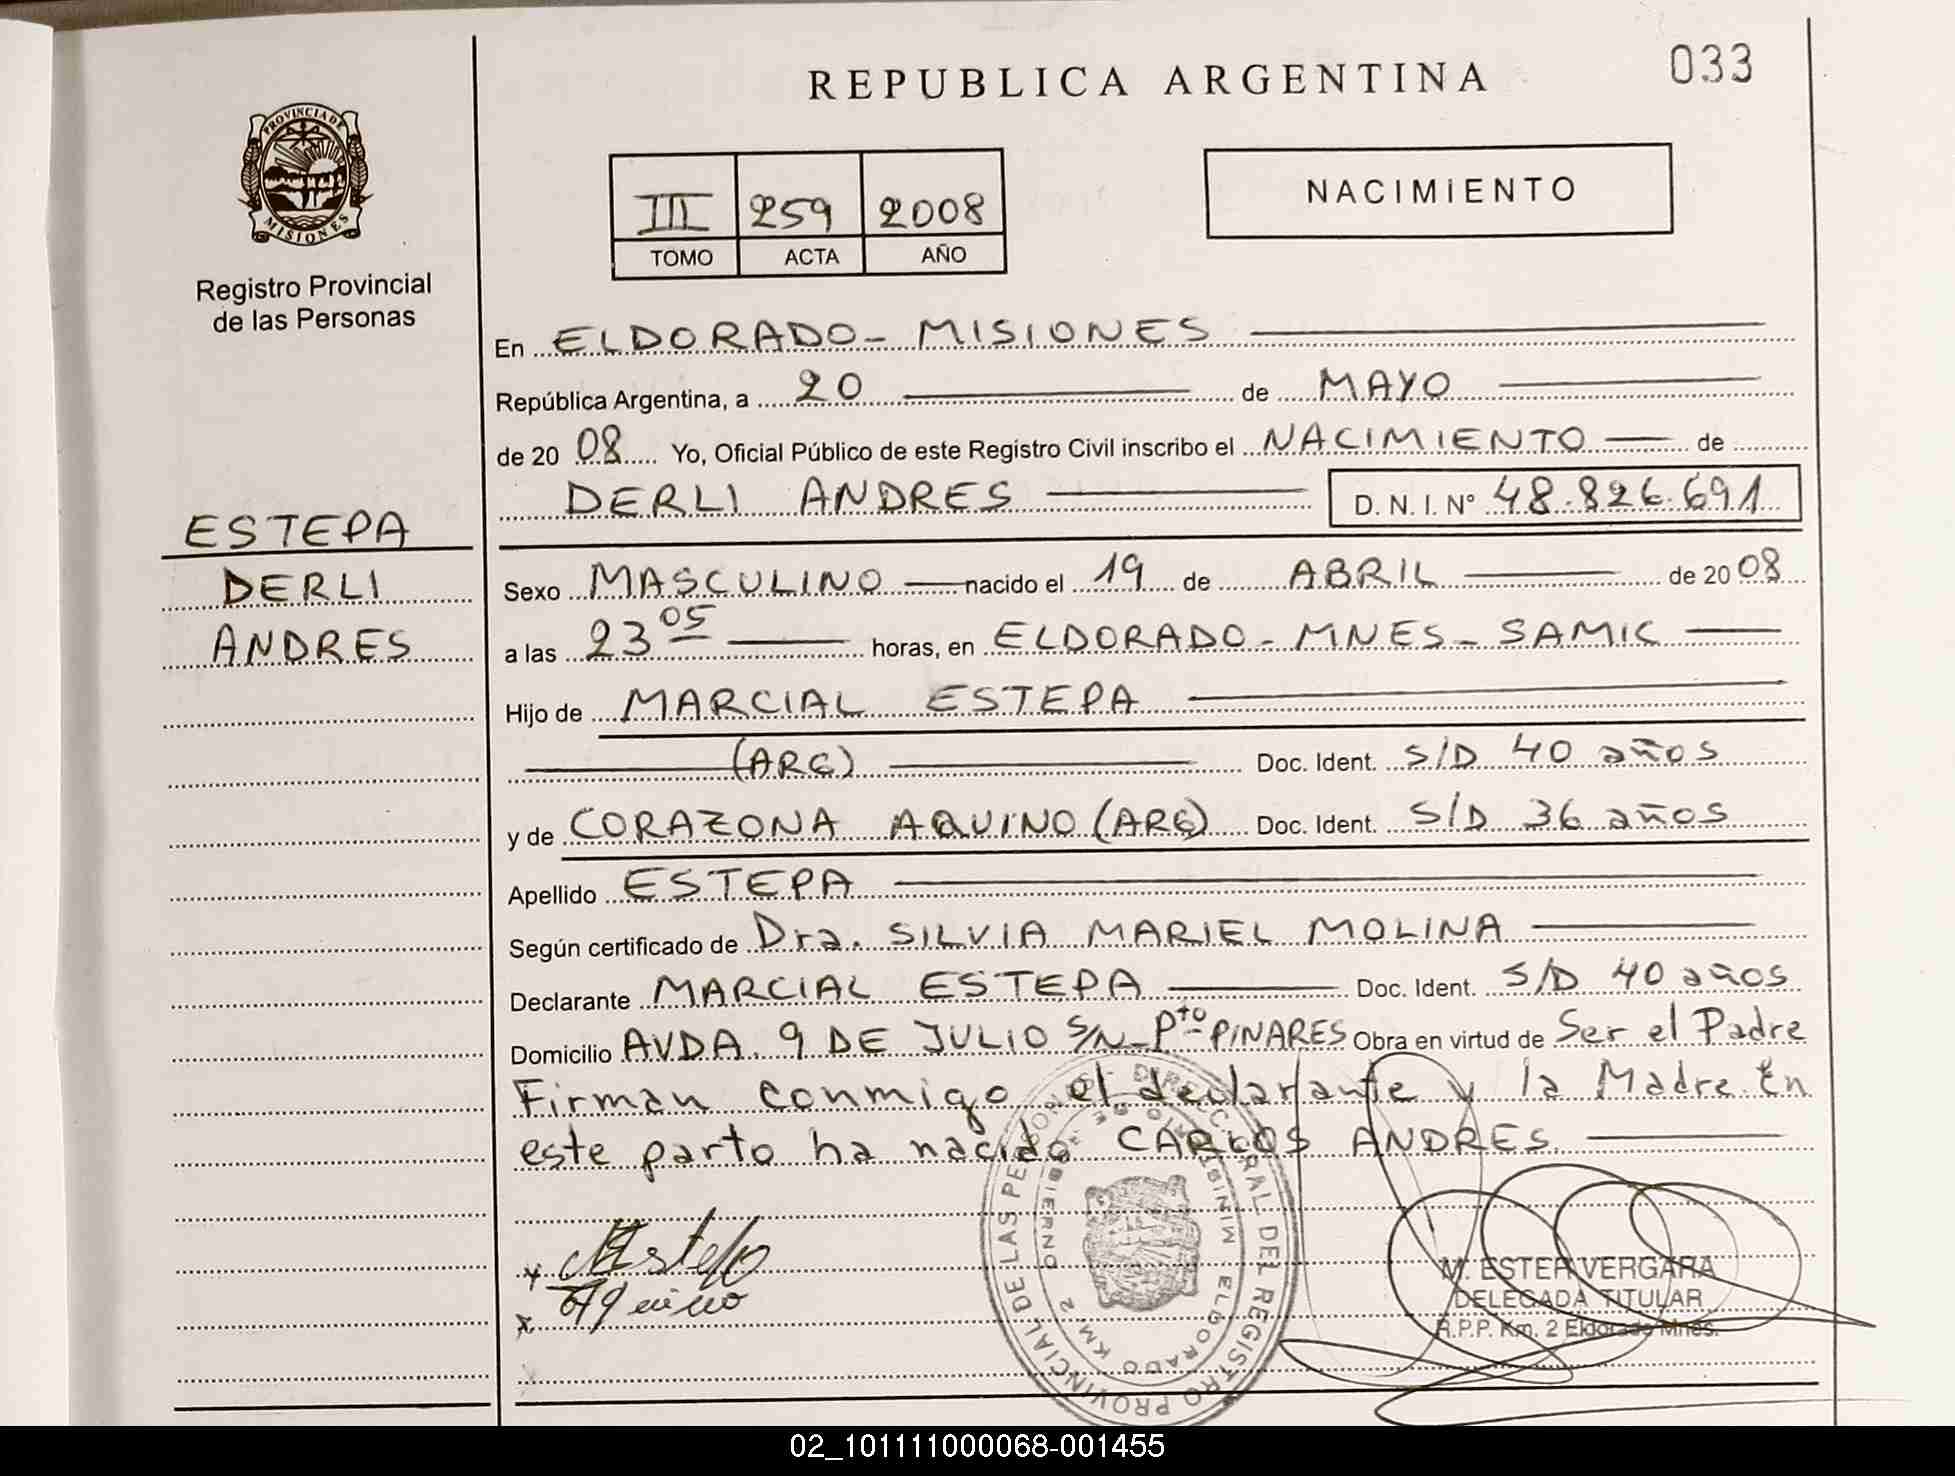 033
REPUBLICA ARGENTINA
PROVINCIA DE
MISIONES
Registro Provincial
de las Personas
III 259 2008
TOMO ACTA AÑO
NACIMIENTO
ESTEPA
DERLI
ANDRES
En ELDORADO - MISIONES
República Argentina, a 20 de MAYO
de 2008 Yo, Oficial Público de este Registro Civil inscribo el NACIMIENTO de
DERLI ANDRES D. N. I. Nº 48.826.691
Sexo MASCULINO nacido el 19 de ABRIL de 2008
a las 23 05 horas, en ELDORADO - MNES - SAMIC
Hijo de MARCIAL ESTEPA
(ARG) Doc. Ident. S/D 40 años
y de CORAZONA AQUINO (ARG) Doc. Ident. S/D 36 años
Apellido ESTEPA
Según certificado de Dra. SILVIA MARIEL MOLINA
Declarante MARCIAL ESTEPA Doc. Ident. S/D 40 años
Domicilio AVDA. 9 DE JULIO S/N - Pto PINARES Obra en virtud de Ser el Padre
Firman conmigo el declarante y la Madre. En
este parto ha nacido CARLOS ANDRES.
x MEstepa
x Aquino
M. ESTER VERGARA
DELEGADA TITULAR
R.P.P. Km. 2 Eldorado Mnes.
REGISTRO PROVINCIAL DE LAS PERSONAS
ELDORADO KM 2
02_101111000068-001455